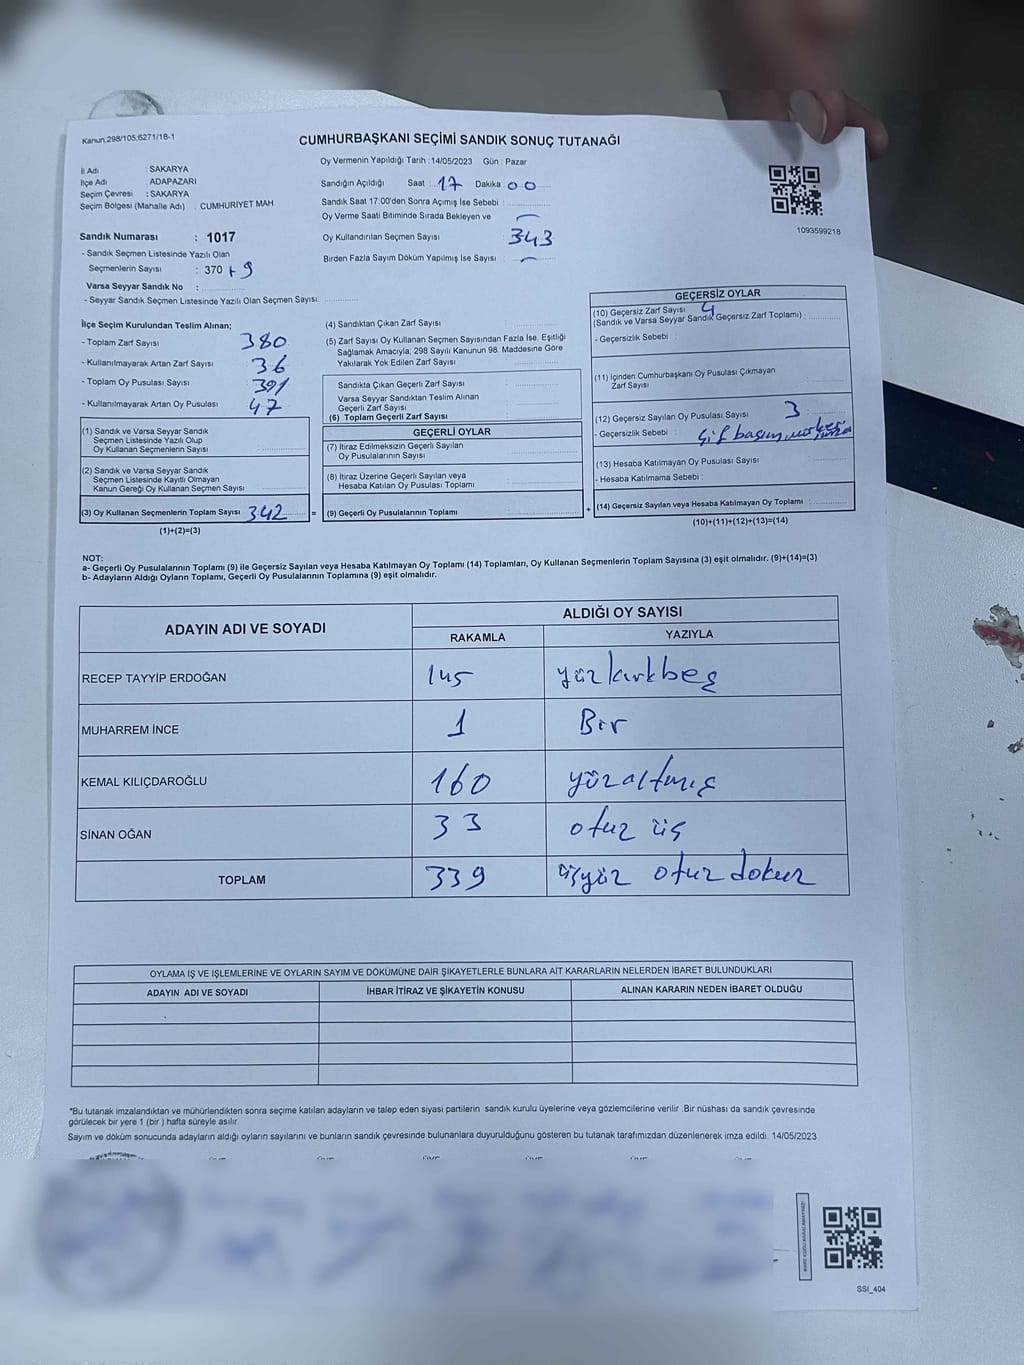 Kanun.298/105.6271/18-1
CUMHURBAŞKANI SEÇİMİ SANDIK SONUÇ TUTANAĞI
İl Adı : SAKARYA
İlçe Adı : ADAPAZARI
Seçim Çevresi : SAKARYA
Seçim Bölgesi (Mahalle Adı) : CUMHURİYET MAH.
Oy Vermenin Yapıldığı Tarih :14/05/2023 Gün : Pazar
Sandığın Açıldığı Saat : 17 Dakika : 00
Sandık Saat 17:00'den Sonra Açımış İse Sebebi :
Oy Verme Saati Bitiminde Sırada Bekleyen ve
Oy Kullandırılan Seçmen Sayısı 343
Birden Fazla Sayım Döküm Yapılmış İse Sayısı :
1093599218
Sandık Numarası : 1017
- Sandık Seçmen Listesinde Yazılı Olan
Seçmenlerin Sayısı : 370 + 9
Varsa Seyyar Sandık No :
- Seyyar Sandık Seçmen Listesinde Yazılı Olan Seçmen Sayısı:
İlçe Seçim Kurulundan Teslim Alınan;
- Toplam Zarf Sayısı 380
- Kullanılmayarak Artan Zarf Sayısı 36
- Toplam Oy Pusulası Sayısı 391
- Kullanılmayarak Artan Oy Pusulası 47
(1) Sandık ve Varsa Seyyar Sandık
Seçmen Listesinde Yazılı Olup
Oy Kullanan Seçmenlerin Sayısı
(2) Sandık ve Varsa Seyyar Sandık
Seçmen Listesinde Kayıtlı Olmayan
Kanun Gereği Oy Kullanan Seçmen Sayısı
(3) Oy Kullanan Seçmenlerin Toplam Sayısı 342
(1)+(2)=(3)
(4) Sandıktan Çıkan Zarf Sayısı
(5) Zarf Sayısı Oy Kullanan Seçmen Sayısından Fazla İse, Eşitliği
Sağlamak Amacıyla; 298 Sayılı Kanunun 98. Maddesine Göre
Yakılarak Yok Edilen Zarf Sayısı
Sandıkta Çıkan Geçerli Zarf Sayısı
Varsa Seyyar Sandıktan Teslim Alınan
Geçerli Zarf Sayısı
(6) Toplam Geçerli Zarf Sayısı
GEÇERLİ OYLAR
(7) İtiraz Edilmeksizin Geçerli Sayılan
Oy Pusulalarının Sayısı
(8) İtiraz Üzerine Geçerli Sayılan veya
Hesaba Katılan Oy Pusulası Toplamı
= (9) Geçerli Oy Pusulalarının Toplamı
GEÇERSİZ OYLAR
(10) Geçersiz Zarf Sayısı 4
(Sandık ve Varsa Seyyar Sandık Geçersiz Zarf Toplamı) :
- Geçersizlik Sebebi :
(11) İçinden Cumhurbaşkanı Oy Pusulası Çıkmayan
Zarf Sayısı
(12) Geçersiz Sayılan Oy Pusulası Sayısı 3
- Geçersizlik Sebebi : Çif basım
(13) Hesaba Katılmayan Oy Pusulası Sayısı
- Hesaba Katılmama Sebebi :
+ (14) Geçersiz Sayılan veya Hesaba Katılmayan Oy Toplamı
(10)+(11)+(12)+(13)=(14)
NOT:
a- Geçerli Oy Pusulalarının Toplamı (9) ile Geçersiz Sayılan veya Hesaba Katılmayan Oy Toplamı (14) Toplamları, Oy Kullanan Seçmenlerin Toplam Sayısına (3) eşit olmalıdır. (9)+(14)=(3)
b- Adayların Aldığı Oyların Toplamı, Geçerli Oy Pusulalarının Toplamına (9) eşit olmalıdır.
ADAYIN ADI VE SOYADI
ALDIĞI OY SAYISI
RAKAMLA YAZIYLA
RECEP TAYYİP ERDOĞAN 145 yüzkırkbeş
MUHARREM İNCE 1 Bir
KEMAL KILIÇDAROĞLU 160 yüzaltmış
SİNAN OĞAN 33 otuz üç
TOPLAM 339 üçyüz otuz dokuz
OYLAMA İŞ VE İŞLEMLERİNE VE OYLARIN SAYIM VE DÖKÜMÜNE DAİR ŞİKAYETLERLE BUNLARA AİT KARARLARIN NELERDEN İBARET BULUNDUKLARI
ADAYIN ADI VE SOYADI İHBAR İTİRAZ VE ŞİKAYETİN KONUSU ALINAN KARARIN NEDEN İBARET OLDUĞU
*Bu tutanak imzalandıktan ve mühürlendikten sonra seçime katılan adayların ve talep eden siyasi partilerin sandık kurulu üyelerine veya gözlemcilerine verilir .Bir nüshası da sandık çevresinde
görülecek bir yere 1 (bir ) hafta süreyle asılır.
Sayım ve döküm sonucunda adayların aldığı oyların sayılarını ve bunların sandık çevresinde bulunanlara duyurulduğunu gösteren bu tutanak tarafımızdan düzenlenerek imza edildi. 14/05/2023
SSI_404